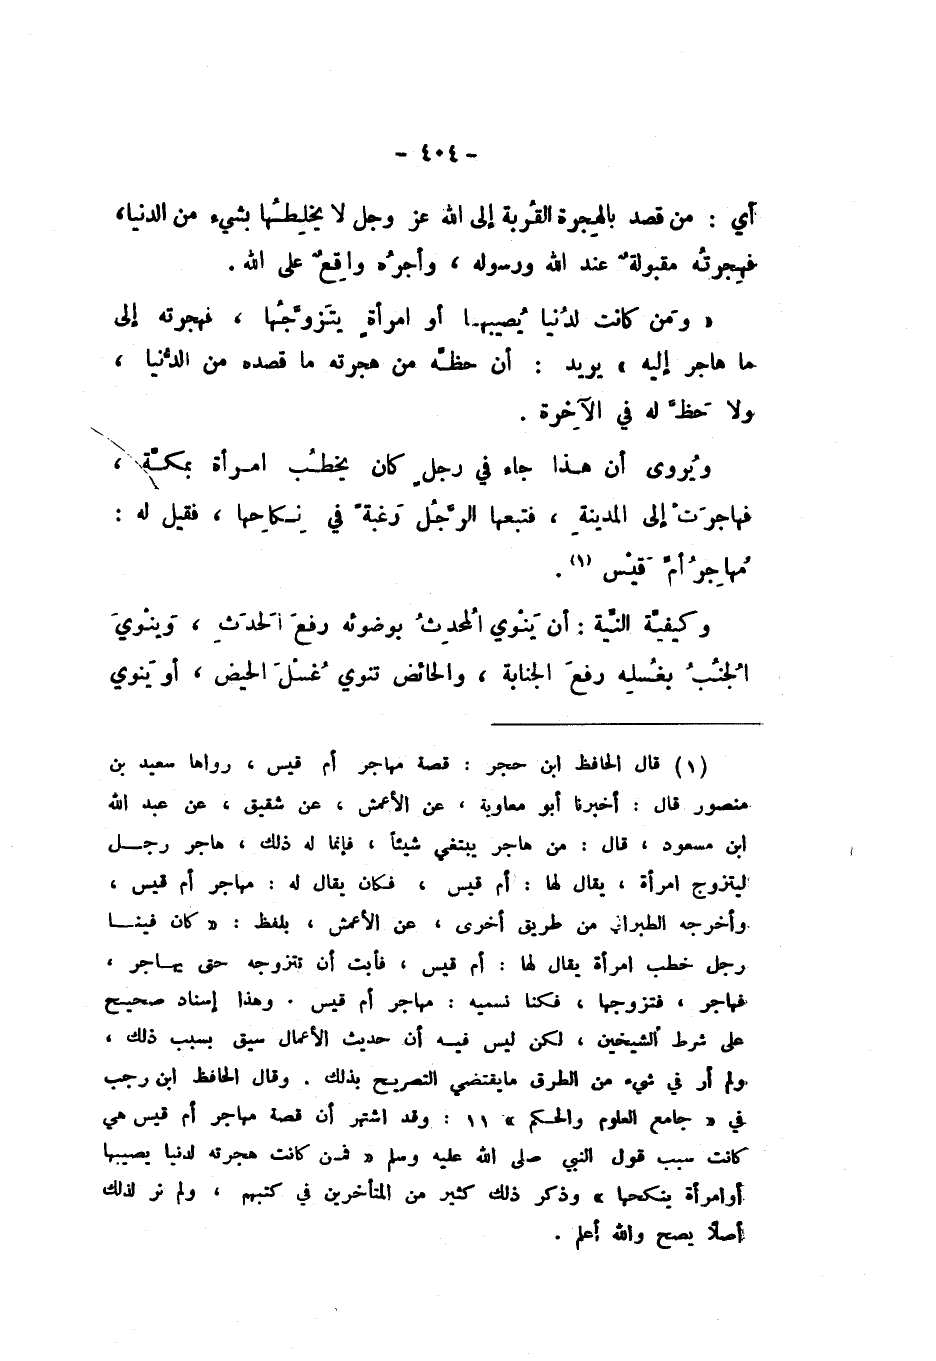 - ٤٠٤ -
أي : من قصد بالهِجرة القُربة إلى الله عز وجل لا يخلِطُها بشيء من الدنيا،
فهِجرتُه مقبولةٌ عند الله ورسوله ، وأجرُه واقِعٌ على الله .
« ومَن كانت لدُنيا يُصيبهـا أو امرأةٍ يتَزوَّجُها ، فهجرته إلى
ما هاجر إليه » يريد : أن حظَّه من هجرته ما قصده من الدُّنيا ،
ولا حَظَّ له في الآخِرة .
ويُروى أن هـذا جاء في رجلٍ كان يخطُب امـرأة بمكـَّة ،
فهاجرَتْ إلى المدينةِ ، فتبعها الرَّجُل رَغبةً في نِـكاحِها ، فقيل له :
مُهاجِرُ أمِّ قَيْس (١) .
وكيفيَّة النيَّة : أن يَنْوي المُحدِثُ بوضوئه رفعَ الحَدَثِ ، وَينْويَ
الجُنُبُ بغُسلِه رفعَ الجنابة ، والحائض تنوي غُسْلَ الحيض ، أو يَنوي
(١) قال الحافظ ابن حجر : قصة مهاجر أم قيس ، رواها سعيد بن
منصور قال : أخبرنا أبو معاوية ، عن الأعمش ، عن شقيق ، عن عبد الله
ابن مسعود ، قال : من هاجر يبتغي شيئاً ، فإنما له ذلك ، هاجر رجــل
ليتزوج امرأة ، يقال لها : أم قيس ، فكان يقال له : مهاجر أم قيس ،
وأخرجه الطبراني من طريق أخرى ، عن الأعمش ، بلفظ : « كان فينــا
رجل خطب امرأة يقال لها : أم قيس ، فأبت أن تتزوجه حتى يهـاجر ،
فهاجر ، فتزوجها ، فكنا نسميه : مهاجر أم قيس . وهذا إسناد صحيح
على شرط الشيخين ، لكن ليس فيـه أن حديث الأعمال سيق بسبب ذلك ،
ولم أر في شيء من الطرق مايقتضي التصريح بذلك . وقال الحافظ ابن رجب
في « جامع العلوم والحكم » ١١ : وقد اشتهر أن قصة مهاجر أم قيس هي
كانت سبب قول النبي صلى الله عليه وسلم « فمـن كانت هجرته لدنيا يصيبها
أوامرأة ينكحها » وذكر ذلك كثير من المتأخرين في كتبهم ، ولم نر لذلك
أصلاً يصح والله أعلم .